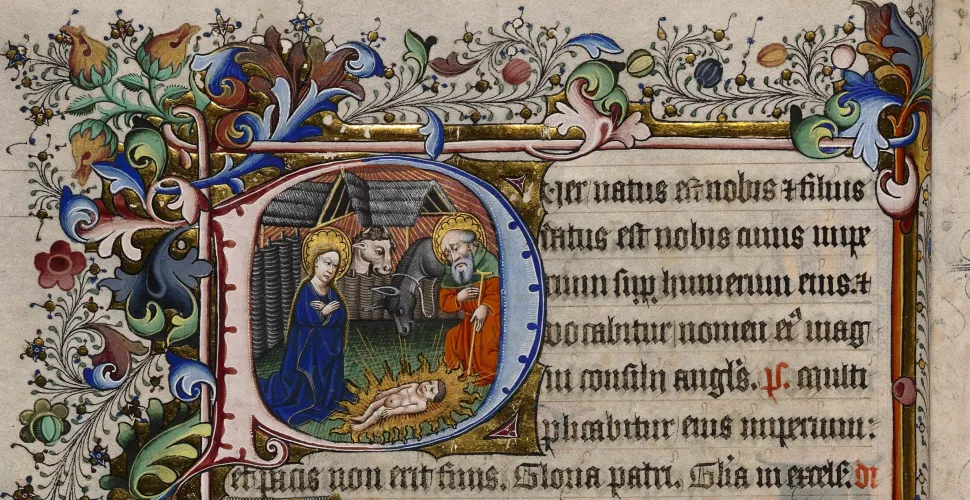 Puer natus est nobis ⁊ filius
datus est nobis cuius impe
rium sup humerum eius. ⁊
vocabitur nomen ei⁹ mag
ni consilii angl's. ps. multi
plicabitur eius imperium:
et pacis non erit finis. Gloria patri. Glia in excels. di